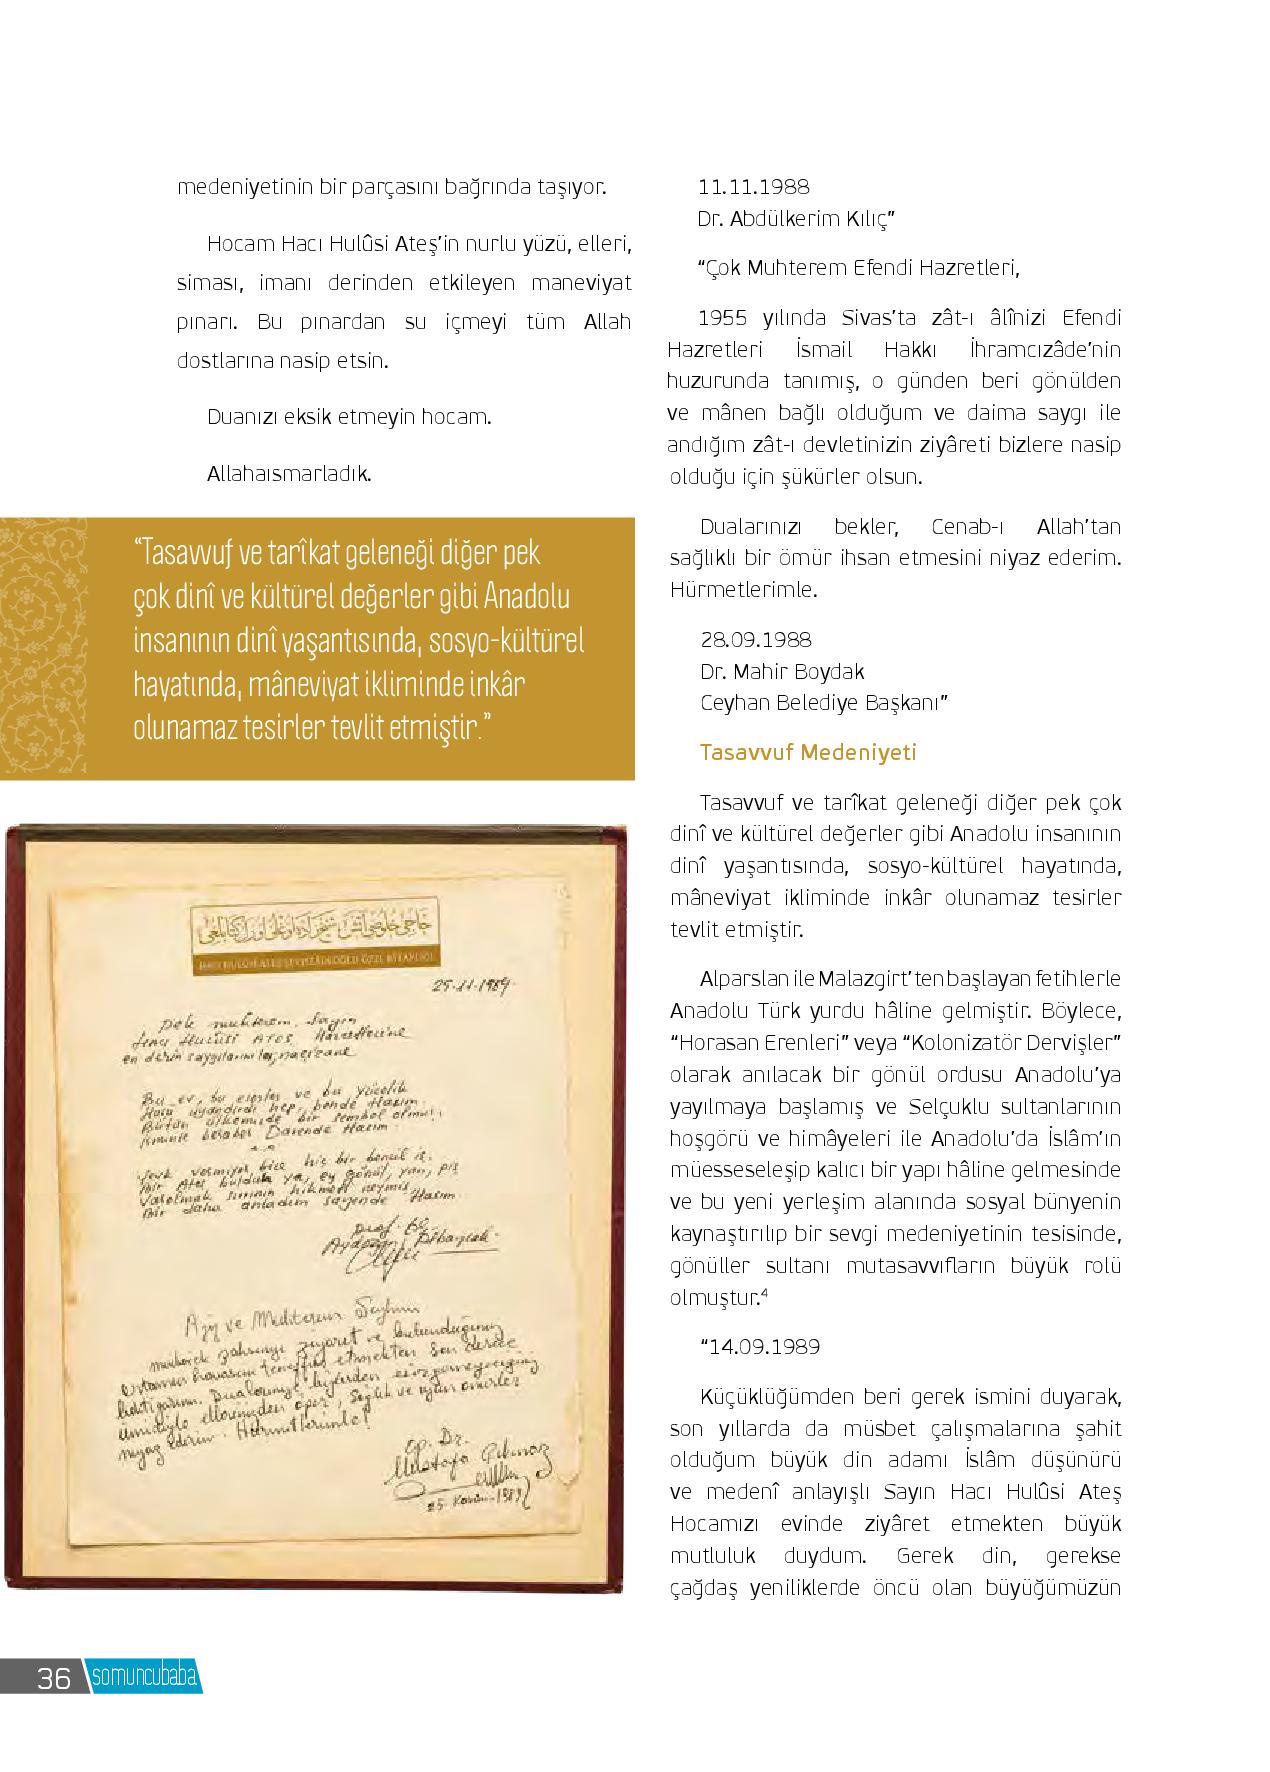 medeniyetinin bir parçasını bağrında taşıyor.
Hocam Hacı Hulûsi Ateş’in nurlu yüzü, elleri,
siması, imanı derinden etkileyen maneviyat
pınarı. Bu pınardan su içmeyi tüm Allah
dostlarına nasip etsin.
Duanızı eksik etmeyin hocam.
Allahaısmarladık.
“Tasavvuf ve tarîkat geleneği diğer pek
çok dinî ve kültürel değerler gibi Anadolu
insanının dinî yaşantısında, sosyo-kültürel
hayatında, mâneviyat ikliminde inkâr
olunamaz tesirler tevlit etmiştir.”
25-11-1989
Pek muhterem Sayın
Hacı Hulûsi Ateş Hazretlerine
en derin saygılarımla, naçizane
Bu ev, bu eserler ve bu yücelik
hep, bende Hasım
Bütün ülkemizde bir sembol olmuş
isminle beraber Darende Hasım
Şevk vermiyor bize hiç bir
Bir Ateş bulduk ya, ey gönül, yan, piş
hikmeti neymiş
Bir daha anladım sayende Hasım
Prof. Dr.
Aydoğan
Aziz ve Muhterem Şeyhim
mübarek şahsınızı ziyaret ve bulunduğunuz
ortamın havasını teneffüs etmekten son derece
Dualarınızı bizlerden esirgemeyeceğiniz
ümidiyle ellerinizden öper, sağlık ve uzun ömürler
niyaz ederim. Hürmetlerimle!
Op. Dr.
Mustafa
25 Kasım 1989
11.11.1988
Dr. Abdülkerim Kılıç”
“Çok Muhterem Efendi Hazretleri,
1955 yılında Sivas’ta zât-ı âlînizi Efendi
Hazretleri İsmail Hakkı İhramcızâde’nin
huzurunda tanımış, o günden beri gönülden
ve mânen bağlı olduğum ve daima saygı ile
andığım zât-ı devletinizin ziyâreti bizlere nasip
olduğu için şükürler olsun.
Dualarınızı bekler, Cenab-ı Allah’tan
sağlıklı bir ömür ihsan etmesini niyaz ederim.
Hürmetlerimle.
28.09.1988
Dr. Mahir Boydak
Ceyhan Belediye Başkanı”
Tasavvuf Medeniyeti
Tasavvuf ve tarîkat geleneği diğer pek çok
dinî ve kültürel değerler gibi Anadolu insanının
dinî yaşantısında, sosyo-kültürel hayatında,
mâneviyat ikliminde inkâr olunamaz tesirler
tevlit etmiştir.
Alparslan ile Malazgirt’ten başlayan fetihlerle
Anadolu Türk yurdu hâline gelmiştir. Böylece,
“Horasan Erenleri” veya “Kolonizatör Dervişler”
olarak anılacak bir gönül ordusu Anadolu’ya
yayılmaya başlamış ve Selçuklu sultanlarının
hoşgörü ve himâyeleri ile Anadolu’da İslâm’ın
müesseseleşip kalıcı bir yapı hâline gelmesinde
ve bu yeni yerleşim alanında sosyal bünyenin
kaynaştırılıp bir sevgi medeniyetinin tesisinde,
gönüller sultanı mutasavvıfların büyük rolü
olmuştur.⁴
“14.09.1989
Küçüklüğümden beri gerek ismini duyarak,
son yıllarda da müsbet çalışmalarına şahit
olduğum büyük din adamı İslâm düşünürü
ve medenî anlayışlı Sayın Hacı Hulûsi Ateş
Hocamızı evinde ziyâret etmekten büyük
mutluluk duydum. Gerek din, gerekse
çağdaş yeniliklerde öncü olan büyüğümüzün
36 somuncubaba